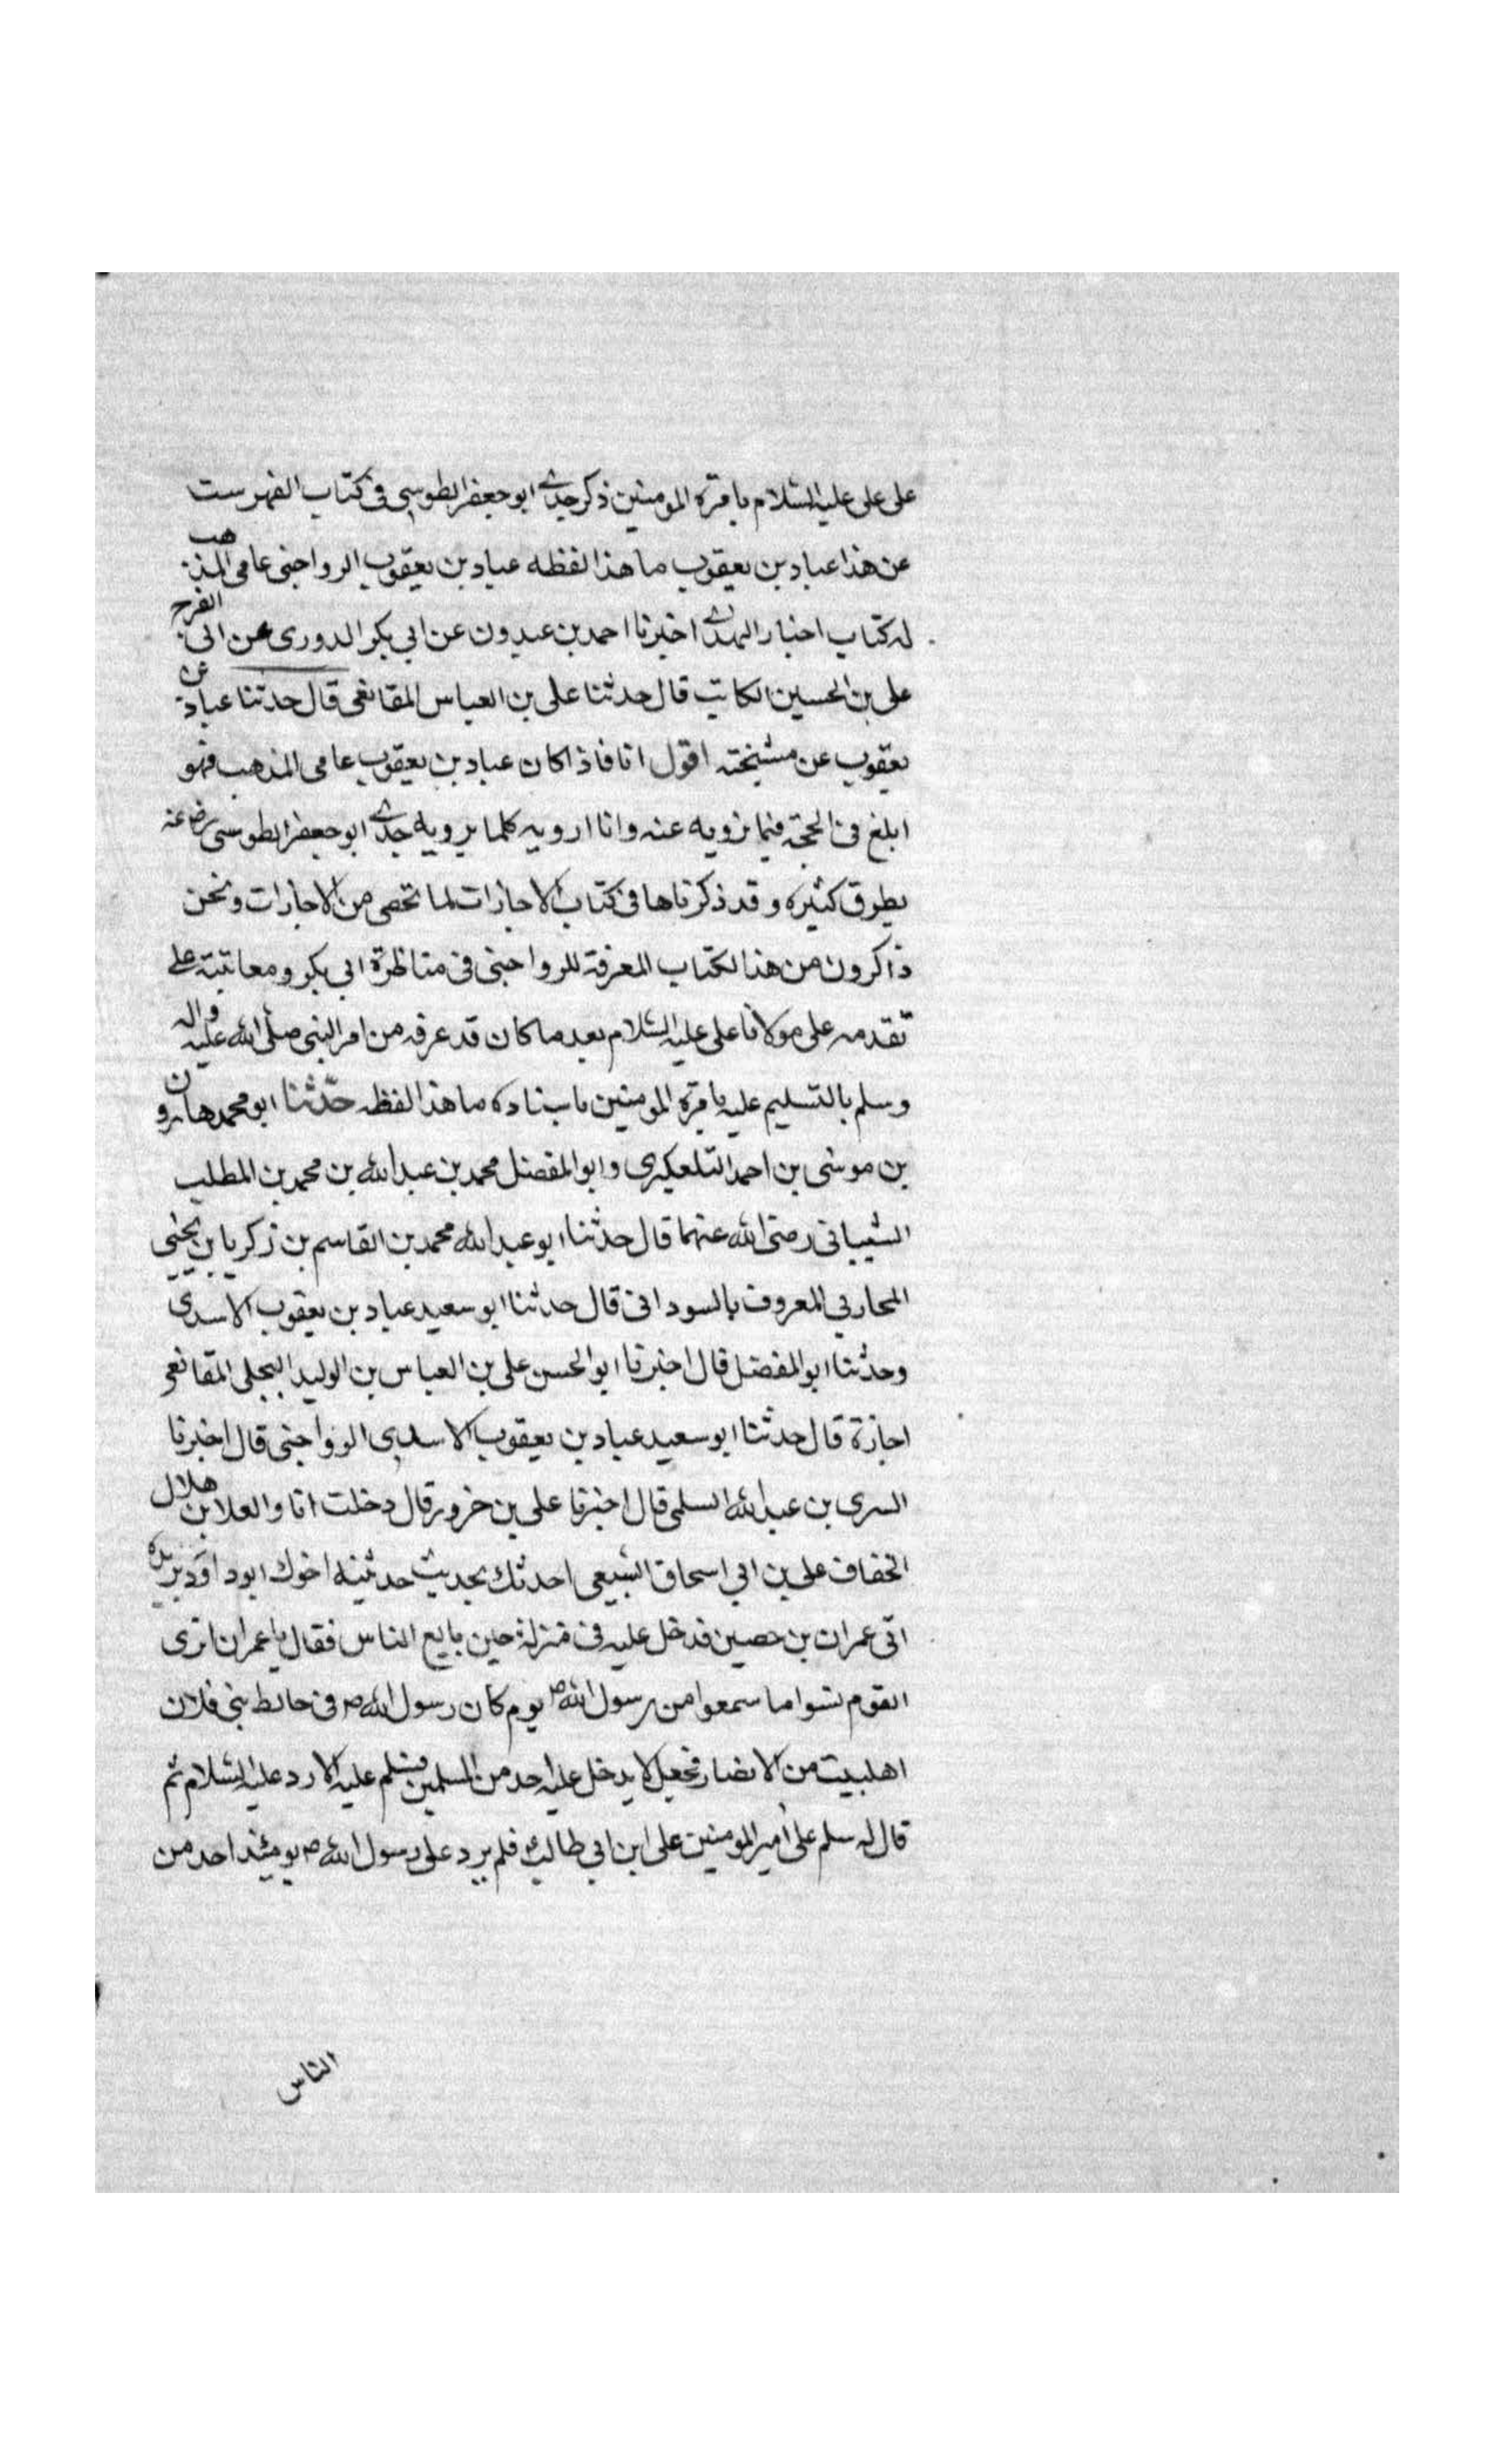 على على عليه السلام بامرة المومنين ذكر جدي ابو جعفر الطوسي في كتاب الفهرست
عن هذا عباد بن يعقوب ما هذا لفظه عباد بن يعقوب الرواجنى عامى المذهب
له كتاب اخبار المهدي اخبرنا احمد بن عبدون عن ابي بكر الدورى عن ابى الفرج
على بن الحسين الكاتب قال حدثنا على بن العباس المقانعى قال حدثنا عباد بن
يعقوب عن مشيخته اقول انا فاذا كان عباد بن يعقوب عامى المذهب فهو
ابلغ فى الحجة فيما نرويه عنه وانا ارويه كلما يرويه جدي ابو جعفر الطوسى رضى عنه
بطرق كثيرة وقد ذكرناها فى كتاب الاجازات لما تحصى من الاجازات ونحن
ذاكرون من هذا الكتاب المعرفة للرواجنى فى مناظرة ابي بكر ومعاتبته على
تقدمه على مولانا على عليه السلام بعد ما كان قد عرفه من امر النبى صلى الله عليه واله
وسلم بالتسليم عليه بامرة المومنين باسناده ما هذا لفظه حدثنا ابو محمد هارون
بن موسى بن احمد التلعكبرى وابو المفضل محمد بن عبد الله بن محمد بن المطلب
الشيبانى رضى الله عنهما قال حدثنا ابو عبد الله محمد بن القاسم بن زكريا بن يحيى
المحاربي المعروف بالسودانى قال حدثنا ابو سعيد عباد بن يعقوب الاسدى
وحدثنا ابو المفضل قال اخبرنا ابو الحسن على بن العباس بن الوليد البجلى المقانعى
اجازة قال حدثنا ابو سعيد عباد بن يعقوب الاسدى الرواجنى قال اخبرنا
السرى بن عبد الله السلمى قال اخبرنا على بن خرور قال دخلت انا والعلا بن هلال
الخفاف على بن ابي اسحاق السبيعى احدثك بحديث حدثنيه اخوك ابو داود بريده
اتى عمران بن حصين فدخل عليه فى منزله حين بايع الناس فقال يا عمران اترى
القوم نسوا ما سمعوا من رسول الله ص يوم كان رسول الله ص فى حائط بنى فلان
اهل بيت من الانصار فجعل لا يدخل عليه احد من المسلمين فيسلم عليه الا رد عليه السلام ثم
قال له سلم على امير المومنين على ابن ابي طالب فلم يرد على رسول الله ص يومئذ احد من
الناس